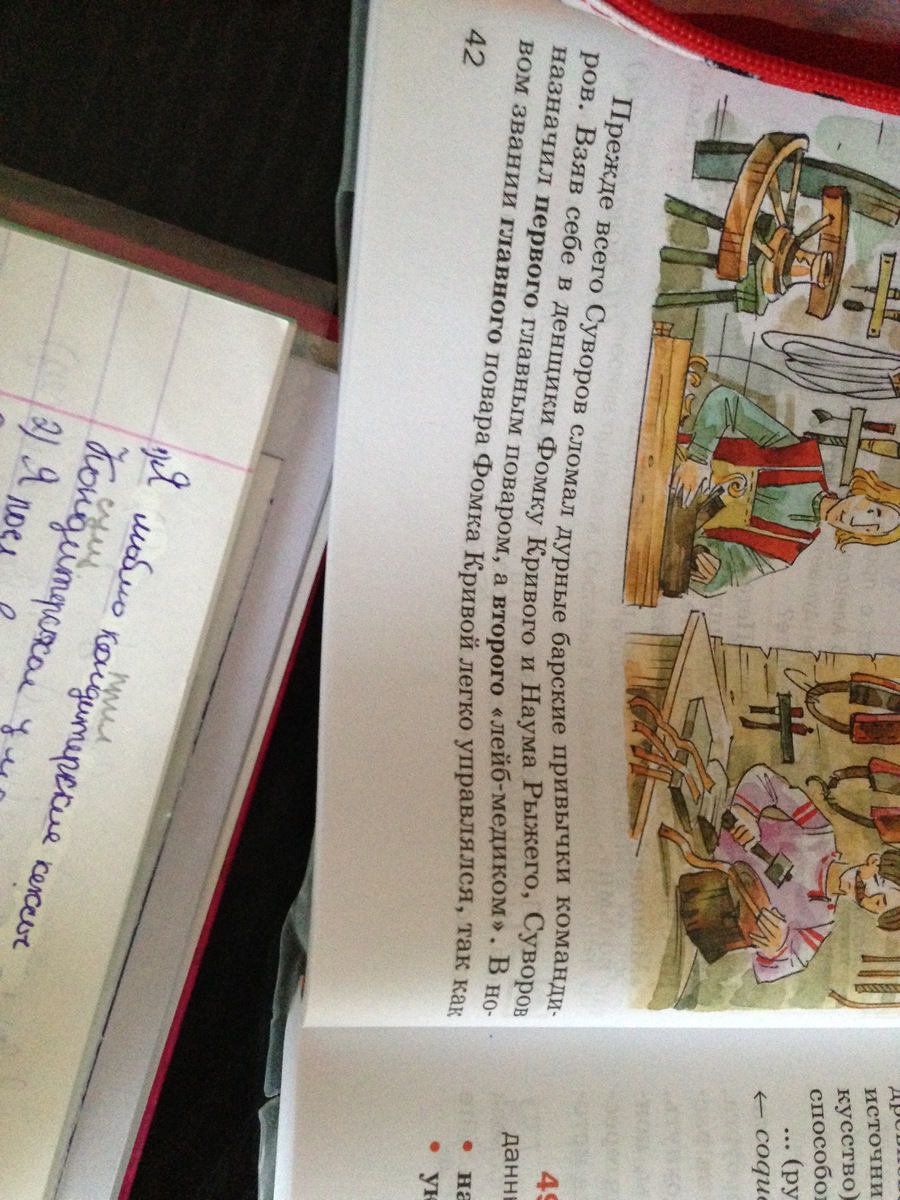 Прежде всего Суворов сломал дурные барские привычки команди-
ров. Взяв себе в денщики Фомку Кривого и Наума Рыжего, Суворов
назначил первого главным поваром, а второго «лейб-медиком». В но-
вом звании главного повара Фомка Кривой легко управлялся, так как
42
источни
кусство)
способо
... (ру
← соци
49
данн
• на
• ук
Я люблю кондитерские кексы
2) Я